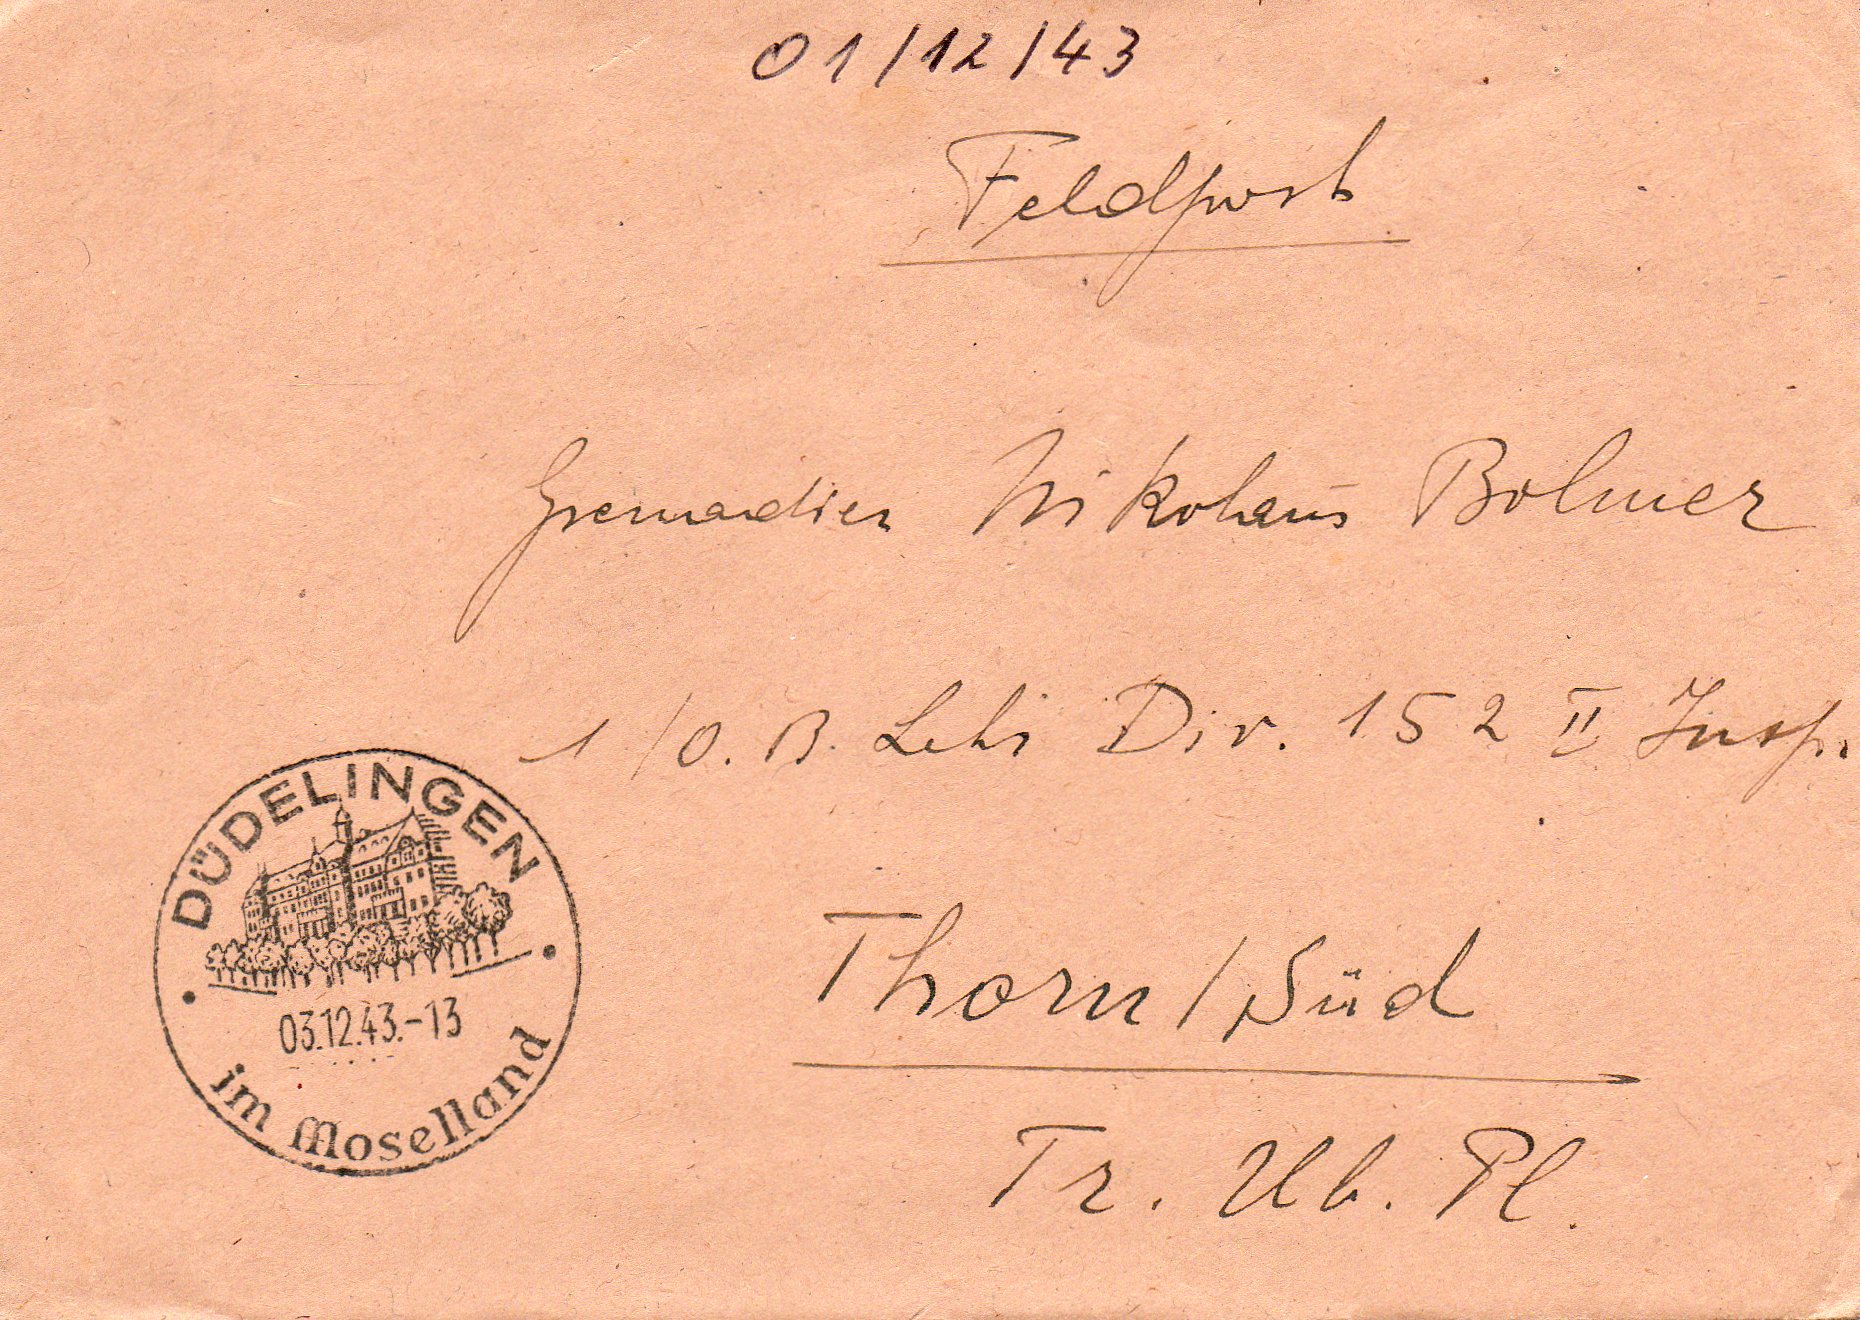 01/12/43
Feldpost
Grenadier Nikolaus Bolmer
1/O.B. Lehr Div. 152 II Insp.
DÜDELINGEN
03.12.43.-13
im Moselland
Thorn/Süd
Tr. Üb. Pl.